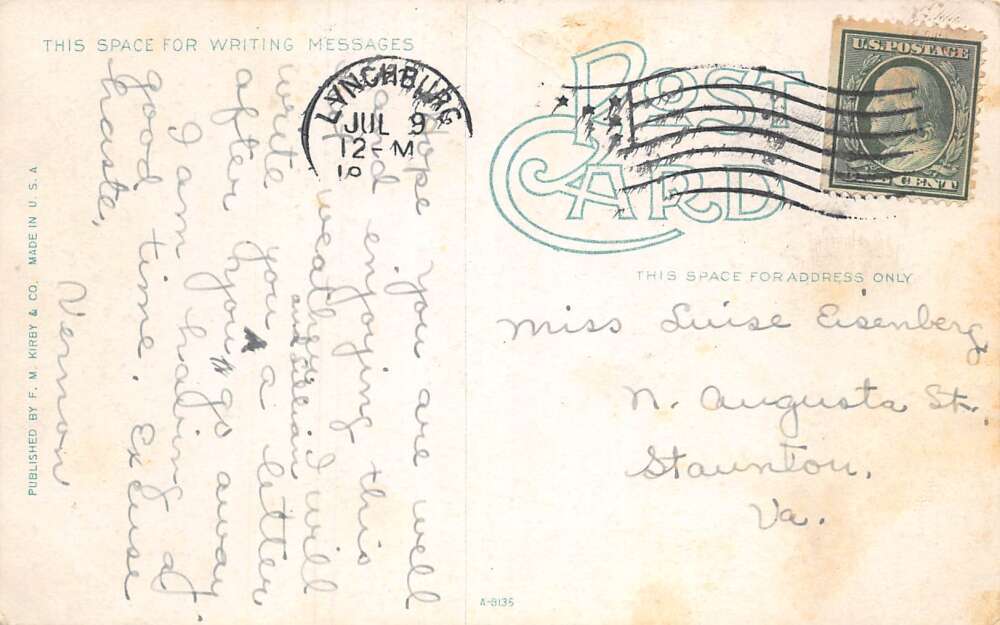 THIS SPACE FOR WRITING MESSAGES
POST CARD
LYNCHBURG
JUL 9
12-M
U.S. POSTAGE
CENT
THIS SPACE FOR ADDRESS ONLY
Hope you are well
and enjoying this
weather. I will
write you a letter
after you "go away.
I am having a
good time. Excuse
haste,
Vernon
Miss Luise Eisenberg
N. Augusta St.
Staunton,
Va.
PUBLISHED BY F. M. KIRBY & CO. MADE IN U. S. A
A-8135